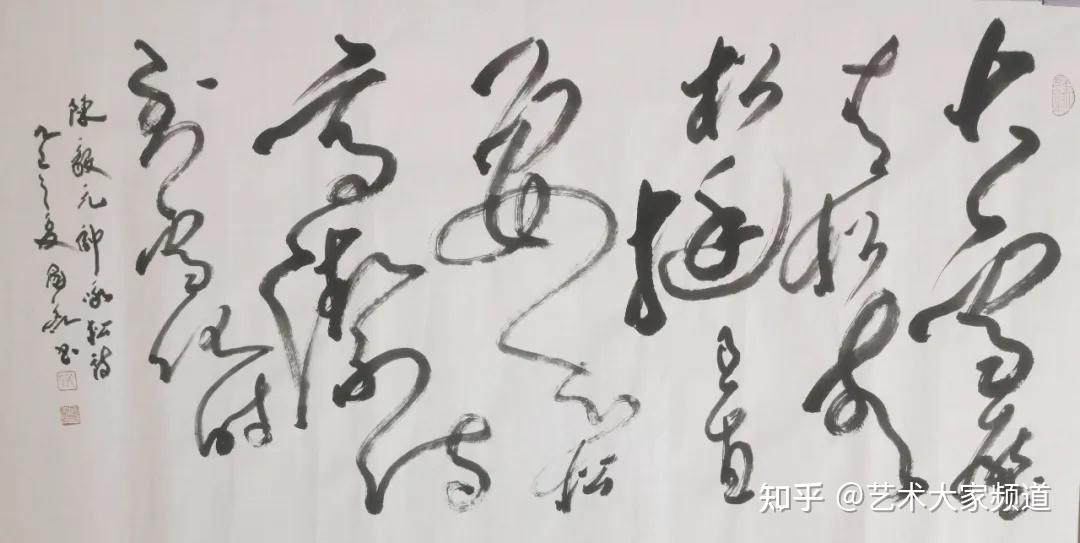 大雪壓
青松青
松挺且直
要知松
高潔待
到雪化时
陳毅元帥詠松詩
之夏國书
知乎 @艺术大家频道